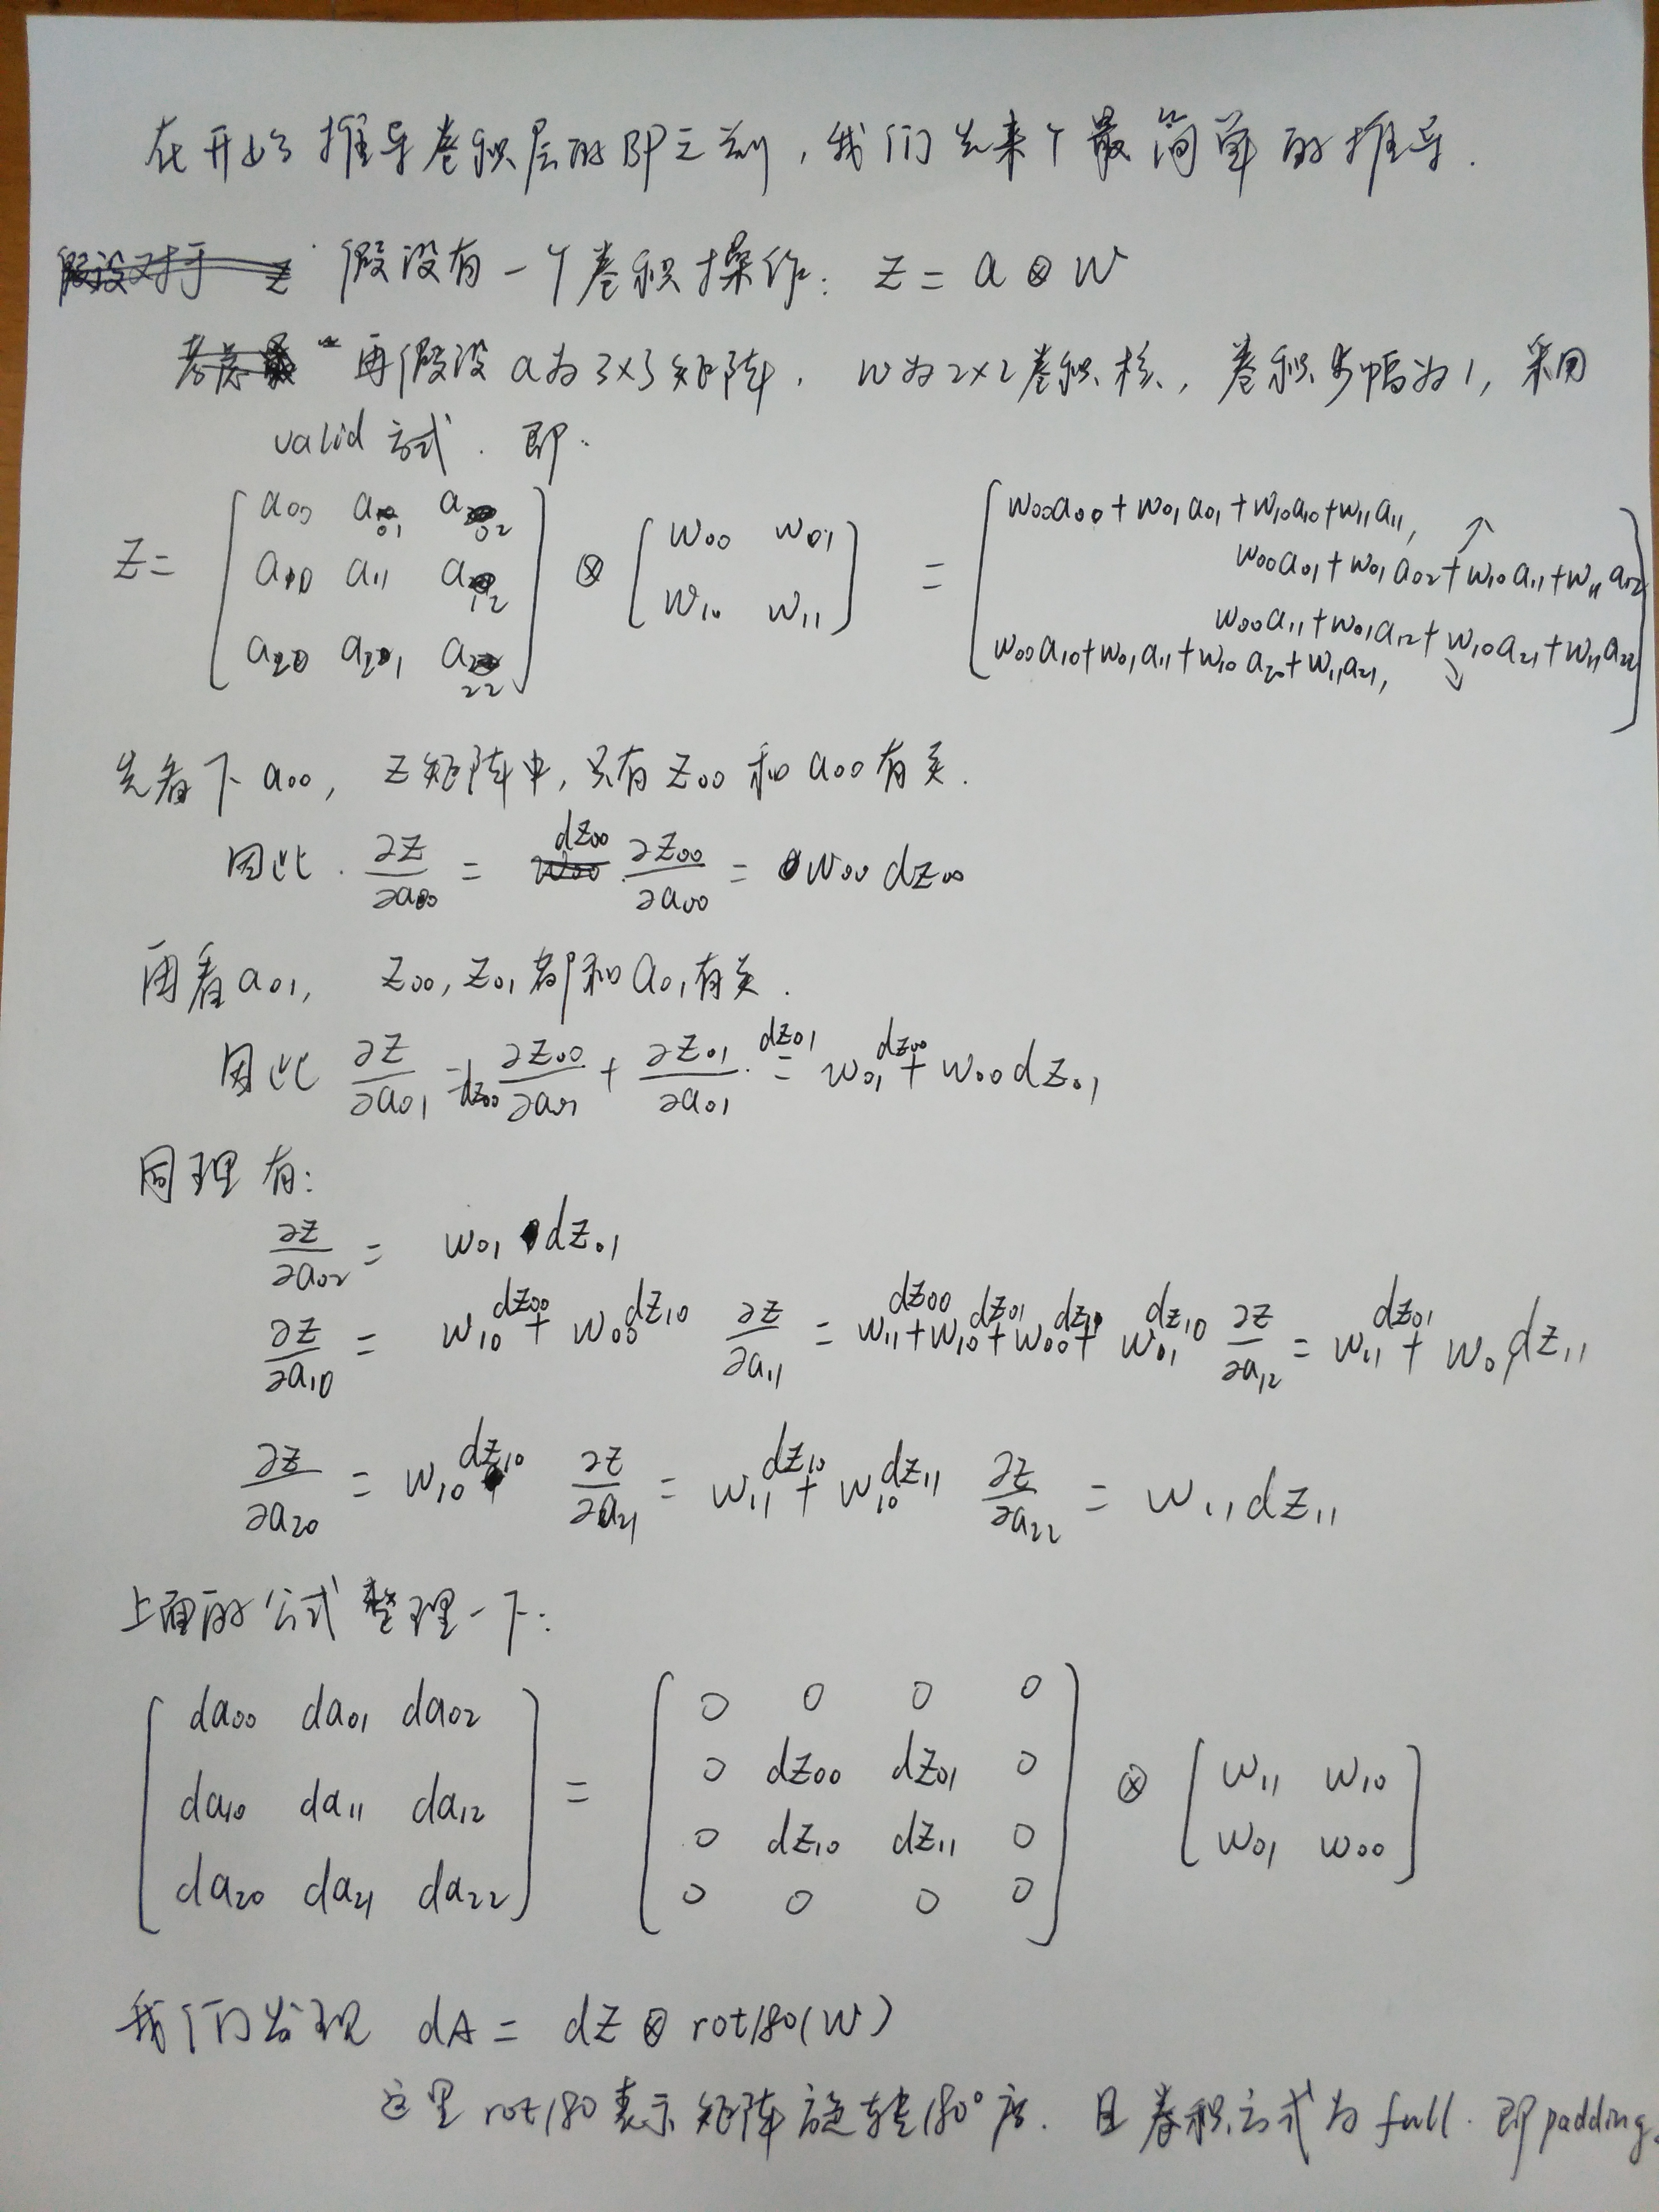 在开始推导卷积层的BP之前，我们先来个最简单的推导.
假设对于 z 假设有一个卷积操作: z = a ⊗ w
再假设 a为3×3矩阵. w为2×2卷积核, 卷积步幅为1, 采用
valid 方式. 即:
z = [a00 a01 a02; a10 a11 a12; a20 a21 a22] ⊗ [w00 w01; w10 w11] = [w00a00+w01a01+w10a10+w11a11, w00a01+w01a02+w10a11+w11a12; w00a10+w01a11+w10a20+w11a21, w00a11+w01a12+w10a21+w11a22]
先看下 a00, z矩阵中, 只有 z00 和 a00 有关.
因此. ∂z/∂a00 = dz00 ∂z00/∂a00 = w00 dz00
再看a01, z00, z01都和a01有关.
因此 ∂z/∂a01 = dz00 ∂z00/∂a01 + ∂z01/∂a01 · dz01 = w01 dz00 + w00 dz01
同理有:
∂z/∂a02 = w01 dz01
∂z/∂a10 = w10 dz00 + w00 dz10 ∂z/∂a11 = w11 dz00 + w10 dz01 + w00 dz11 + w01 dz10 ∂z/∂a12 = w11 dz01 + w01 dz11
∂z/∂a20 = w10 dz10 ∂z/∂a21 = w11 dz10 + w10 dz11 ∂z/∂a22 = w11 dz11
上面的公式整理一下:
[da00 da01 da02; da10 da11 da12; da20 da21 da22] = [0 0 0 0; 0 dz00 dz01 0; 0 dz10 dz11 0; 0 0 0 0] ⊗ [w11 w10; w01 w00]
我们发现 dA = dz ⊗ rot180(w)
这里 rot180 表示矩阵旋转180°度. 且卷积方式为 full. 即padding.